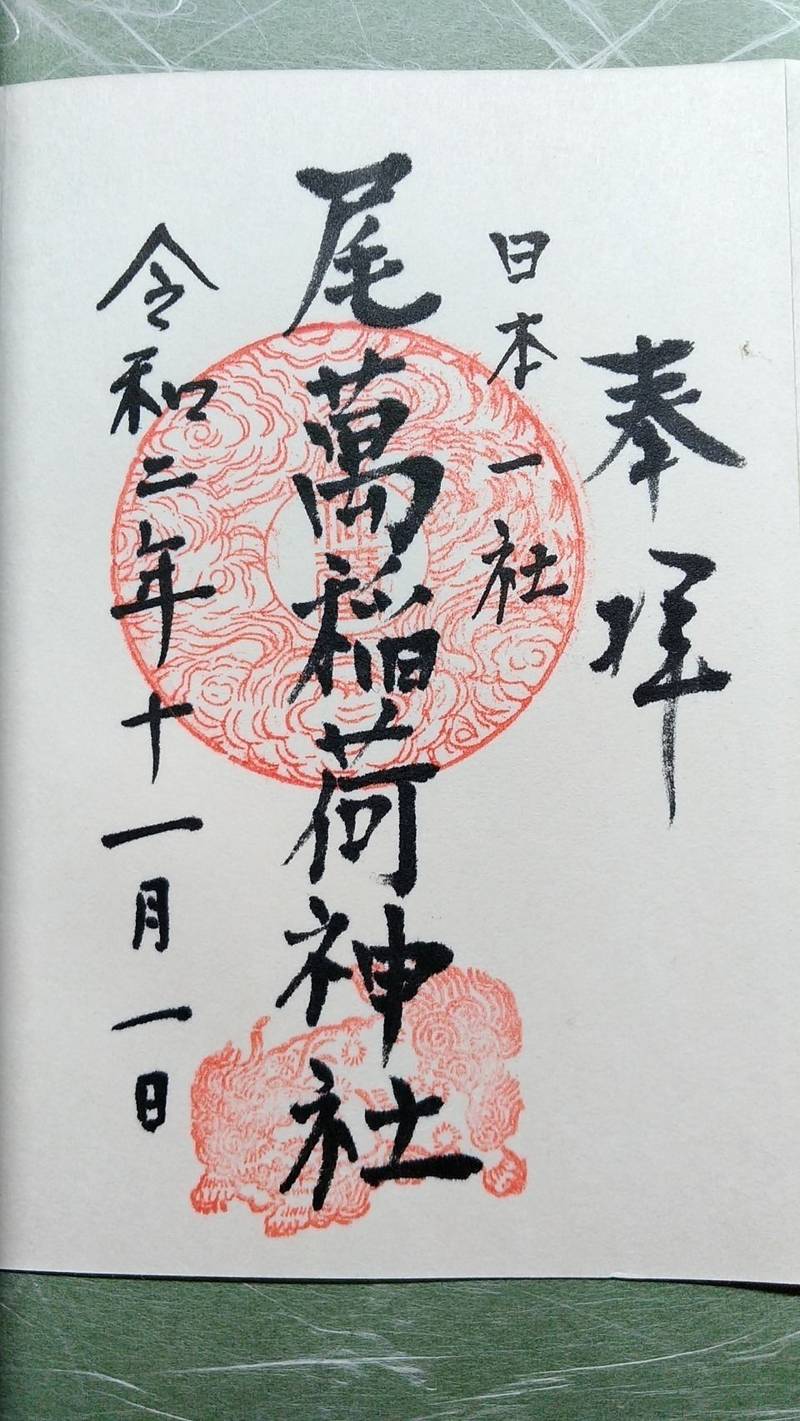 奉拝
日本一社
尾萬稲荷神社
令和二年十一月一日